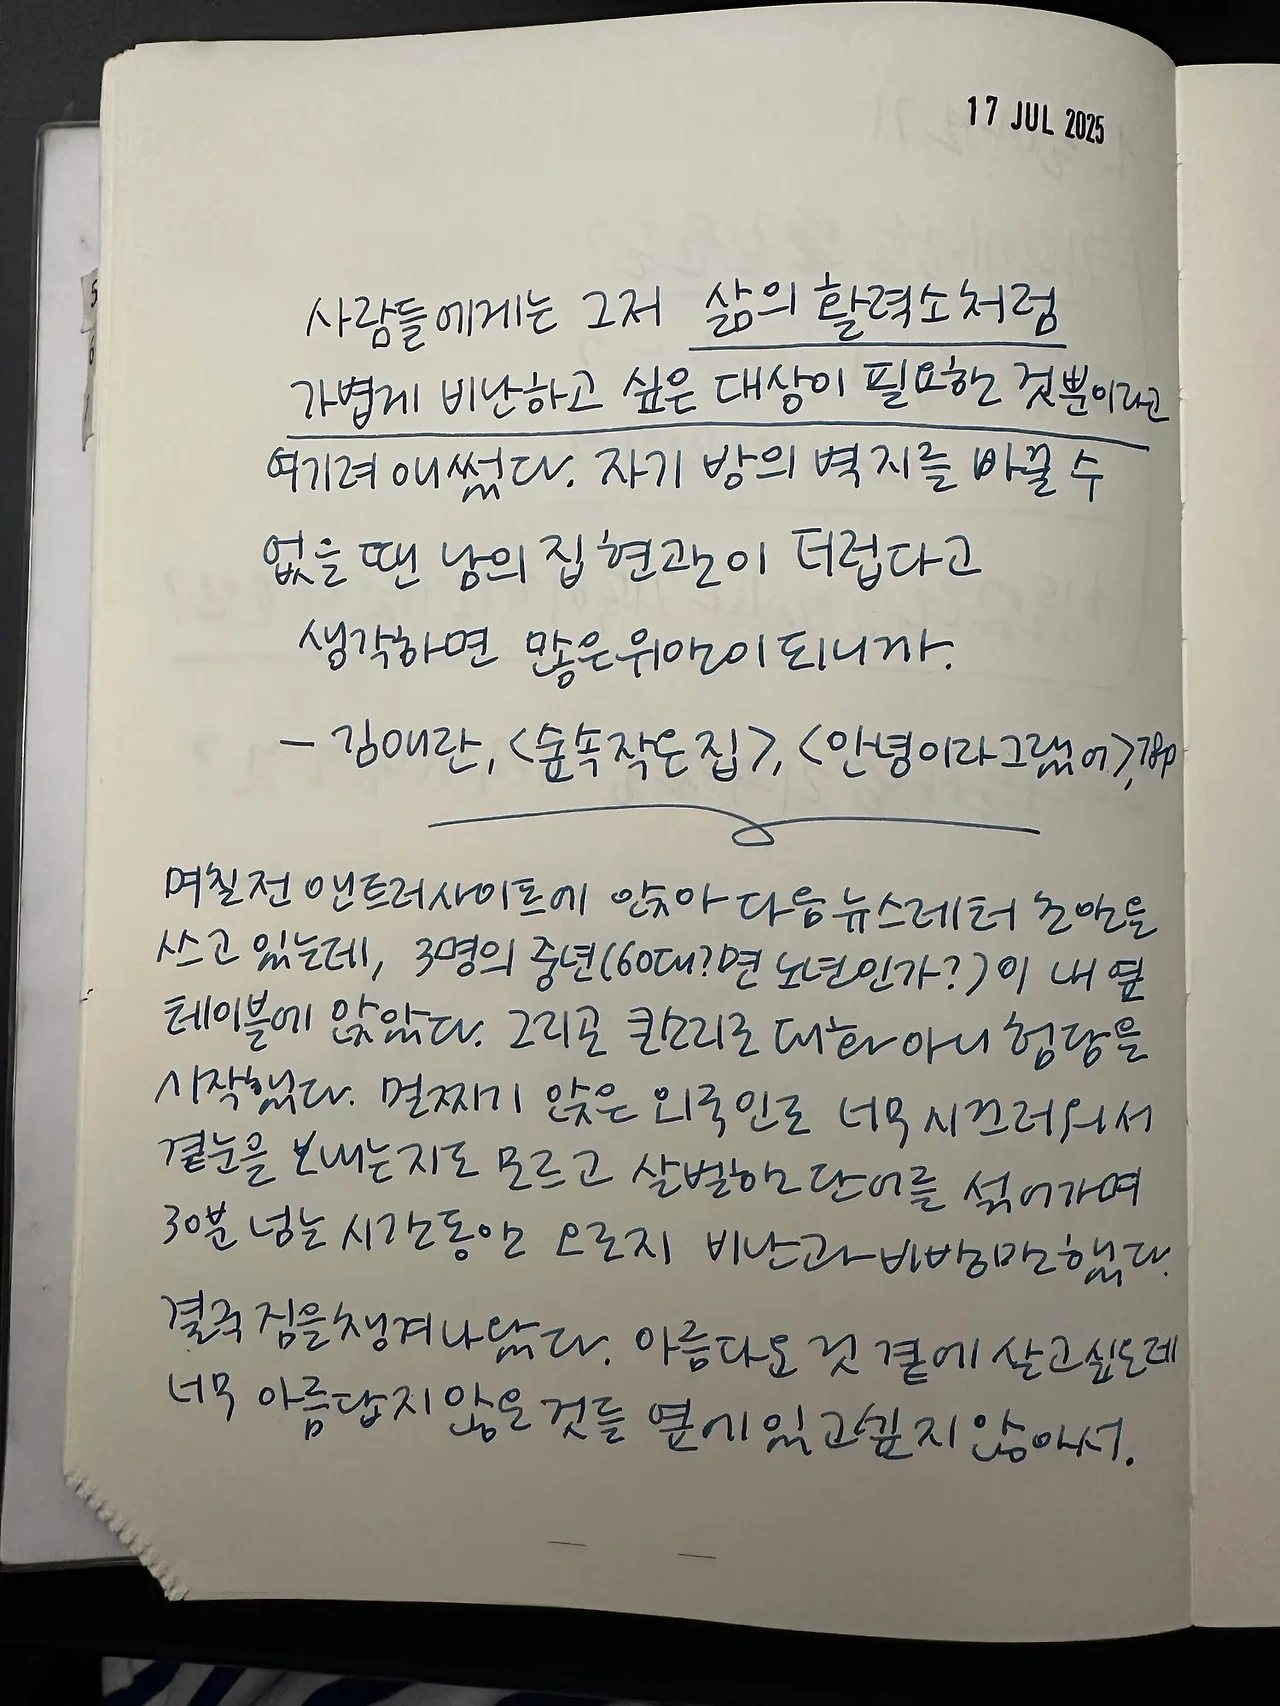 17 JUL 2025
사람들에게는 그저 삶의 활력소처럼
가볍게 비난하고 싶은 대상이 필요한 것뿐이라고
여기려 애썼다. 자기 방의 벽지를 바꿀 수
없을 땐 남의 집 현관이 더럽다고
생각하면 많은 위안이 되니까.
- 김애란, <숲속작은집>, <안녕이라그랬어>, 78p
며칠전 앤트러사이트에 앉아 다음 뉴스레터 초안을
쓰고 있는데, 3명의 중년(60대?면 노년인가?)이 내 옆
테이블에 앉았다. 그리곤 큰소리로 대화 아니 험담을
시작했다. 멀찌기 앉은 외국인도 너무 시끄러워서
곁눈을 보내는지도 모르고 살벌한 단어를 섞어가며
30분 넘는 시간동안 오로지 비난과 비방만 했다.
결국 짐을 챙겨 나왔다. 아름다운 것 곁에 살고싶은데
너무 아름답지 않은 것들 옆에 있고싶지 않아서.